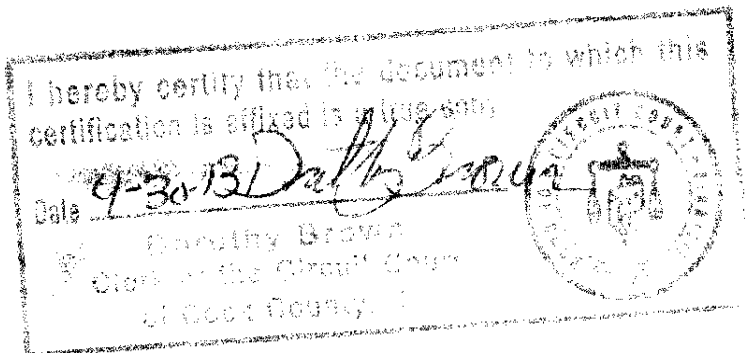 I hereby certify that the document to which this
certification is affixed is a true copy
Date 4-30-13 Dorothy Brown
Dorothy Brown
Clerk of the Circuit Court
of Cook County,
circuit court